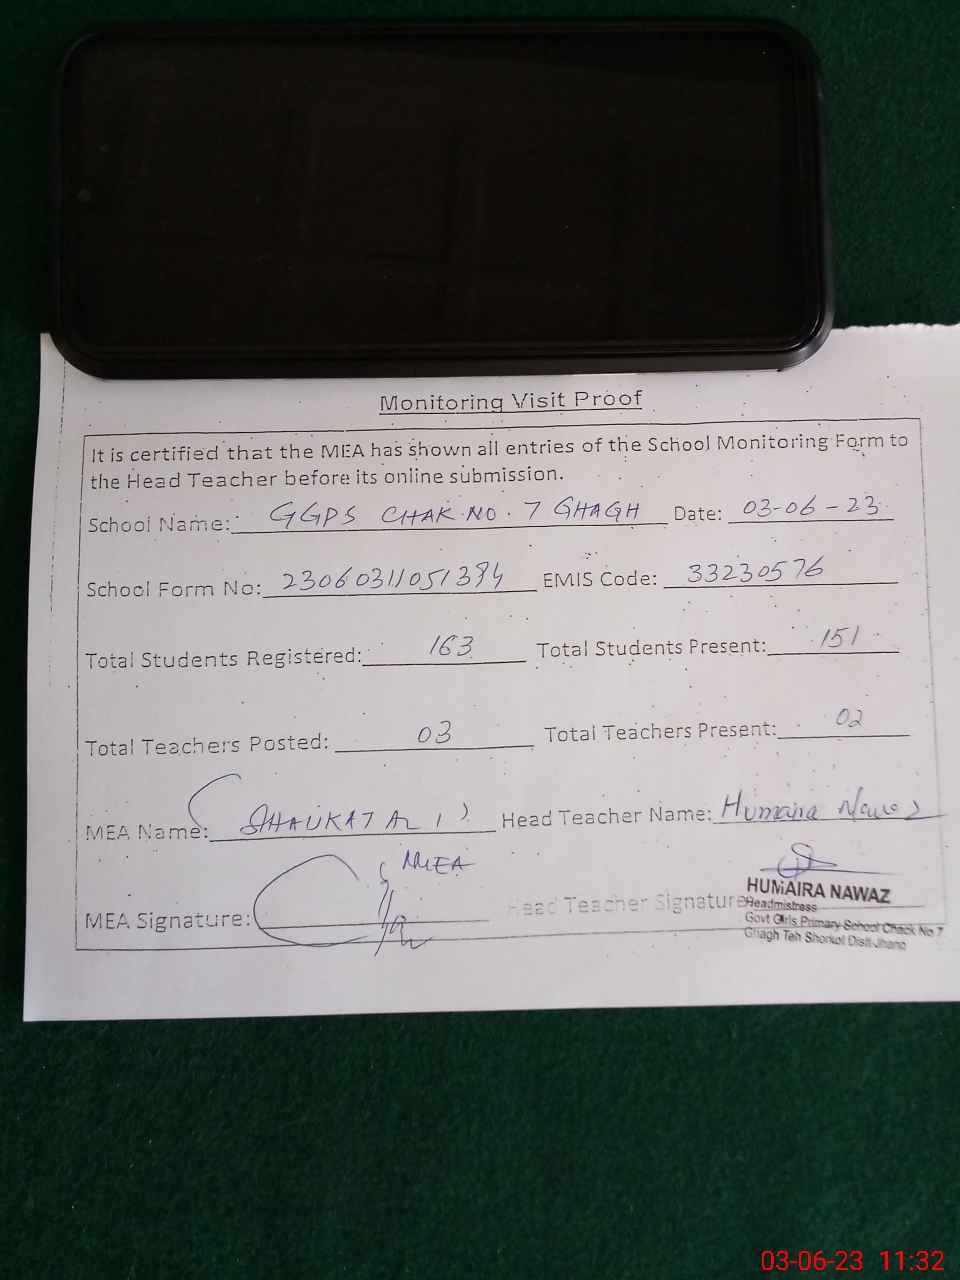 Monitoring Visit Proof
It is certified that the MEA has shown all entries of the School Monitoring Form to
the Head Teacher before its online submission.
School Name: GGPS CHAK NO. 7 GHAGH Date: 03-06-23
School Form No: 23060311051394 EMIS Code: 33230576
Total Students Registered: 163 Total Students Present: 151
Total Teachers Posted: 03 Total Teachers Present: 02
MEA Name: SHAUKAT ALI Head Teacher Name: Humaira Nawaz
MEA
MEA Signature: Head Teacher Signature
HUMAIRA NAWAZ
Headmistress
Govt Girls Primary School Chack No 7
Ghagh Teh Shorkot Distt Jhang
03-06-23 11:32